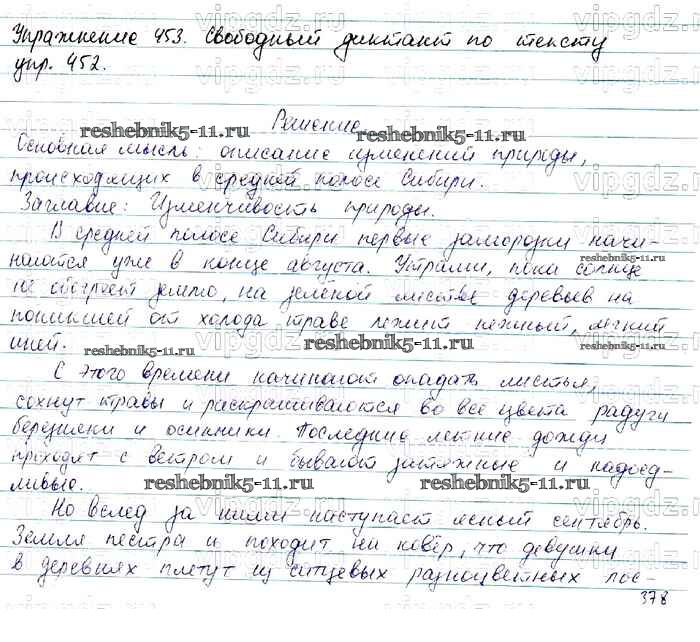 Упражнение 453. Свободный диктант по тексту
упр. 452.
Решение
reshebnik5-11.ru reshebnik5-11.ru
Основная мысль: описание изменений природы,
происходящих в средней полосе Сибири.
Заглавие: Изменчивость природы.
В средней полосе Сибири первые заморозки начи-
reshebnik5-11.ru
наются уже в конце августа. Утрами, пока солнце
не обогреет землю, на зелёной листве деревьев на
поникшей от холода траве лежит нежный, лёгкий
иней.
reshebnik5-11.ru reshebnik5-11.ru reshebnik5-11.ru
С этого времени начинают опадать листья,
сохнут травы и раскрашиваются во все цвета радуги
березняки и осинники. Последние летние дожди
проходят с ветром и бывают затяжные и надоед-
ливые.
reshebnik5-11.ru reshebnik5-11.ru
Но вслед за ними наступает ясный сентябрь.
Земля пестра и походит на ковёр, что девушки
в деревнях плетут из ситцевых разноцветных лос-
378
vipgdz.ru